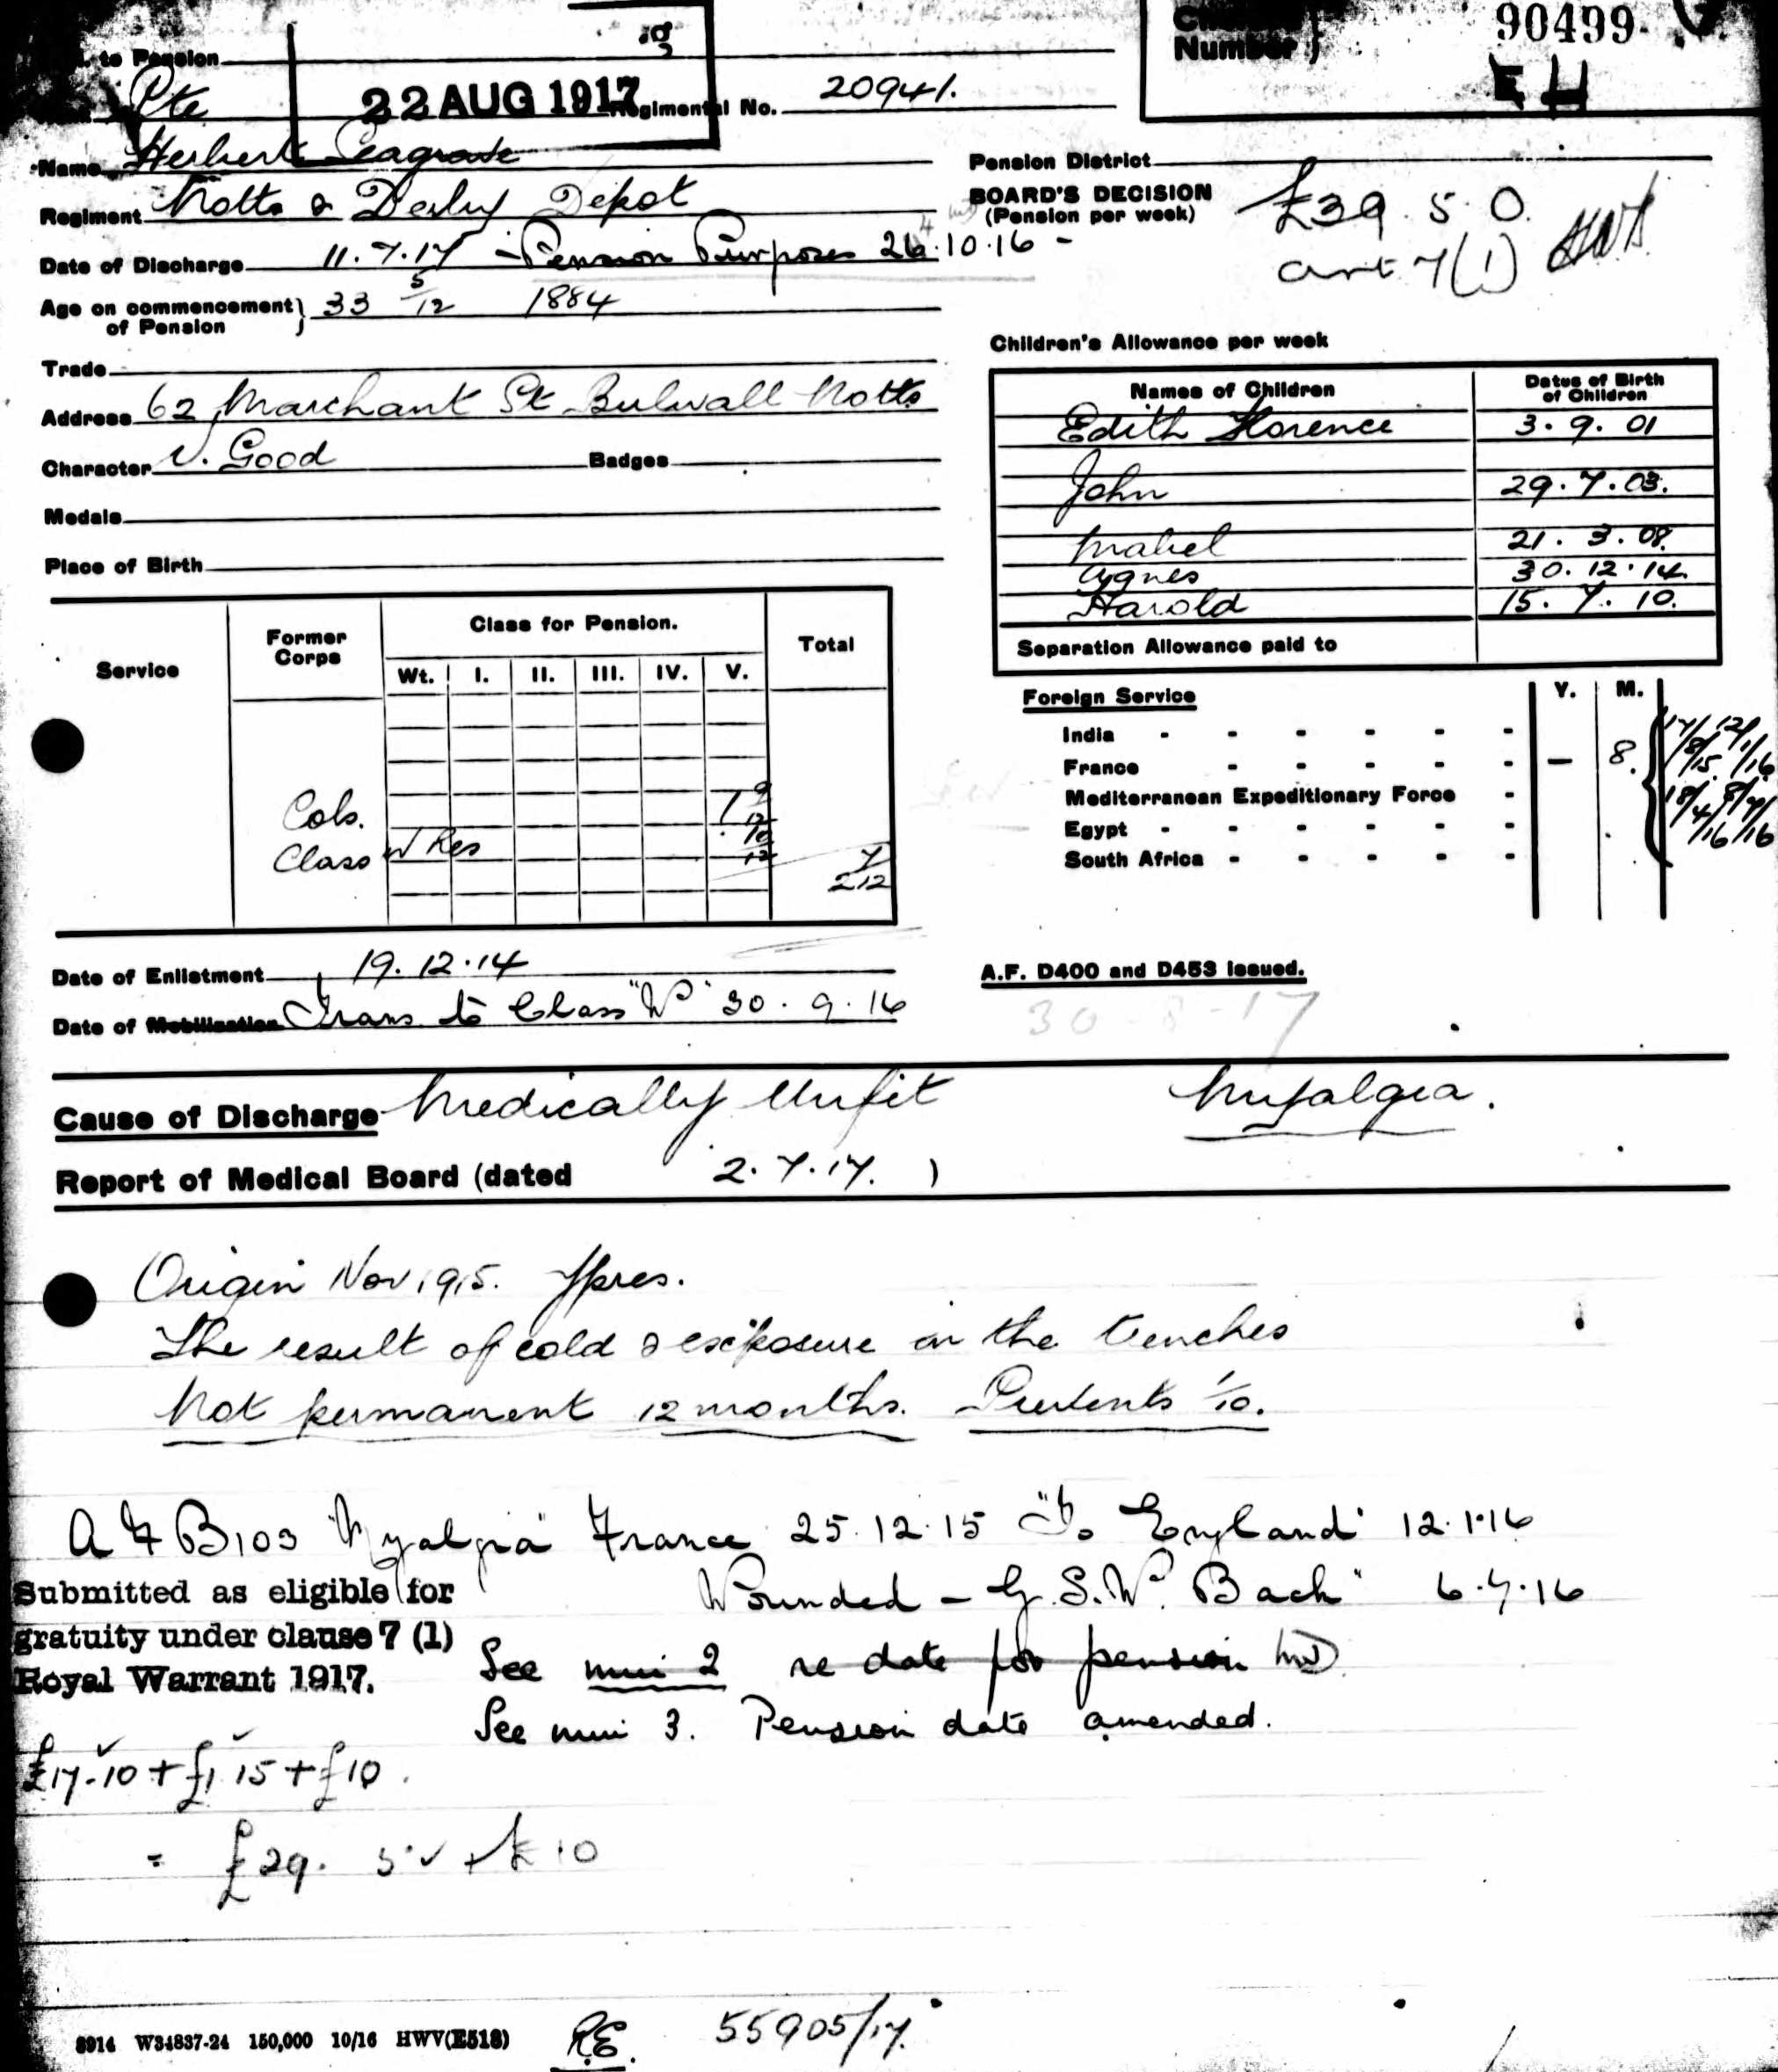 to Pension
Number
90499
E H
22 AUG 1917
Pte
Regimental No. 20941.
Name Herbert Seagrave
Regiment Notts & Derby Depot
Date of Discharge 11.7.17 - Pension Purposes 26.10.16 -
Age on commencement of Pension } 33 5/12 1884
Trade
Address 62 Marchant St Bulwall Notts
Character V. Good Badges
Medals
Place of Birth
Pension District
BOARD'S DECISION
(Pension per week)
£39. 5. 0.
art 7(1)
Children's Allowance per week
Names of Children Dates of Birth of Children
Edith Florence 3. 9. 01
John 29. 7. 03.
Mabel 21. 3. 08.
Agnes 30. 12. 14.
Harold 15. 7. 10.
Separation Allowance paid to
Service Former Corps Class for Pension. Total
Wt. I. II. III. IV. V.
Cols. 1 9/12
Class W Res 10/12
2 7/12
Foreign Service Y. M.
India
France — 8. { 17/8/15 12/1/16
Mediterranean Expeditionary Force
Egypt 18/4/16 8/7/16
South Africa
Date of Enlistment 19. 12. 14
Date of Mobilisation Trans to Class "W" 30. 9. 16
A.F. D400 and D453 issued.
30 - 8 - 17
Cause of Discharge Medically Unfit Myalgia.
Report of Medical Board (dated 2. 7. 17. )
Origin Nov 1915. Ypres.
The result of cold & exposure in the trenches
Not permanent 12 months. Prevents 1/10.
A F B103 "Myalgia" France 25.12.15 "To England" 12.1.16
Wounded - G.S.W. Back" 6.7.16
Submitted as eligible for
gratuity under clause 7 (1)
Royal Warrant 1917.
See min 2 re date for pension
See min 3. Pension date amended.
£17-10 + £1 15 + £10.
= £29. 5 + £10
8914 W34837-24 150,000 10/16 HWV(E518)
R.E. 55905/17.